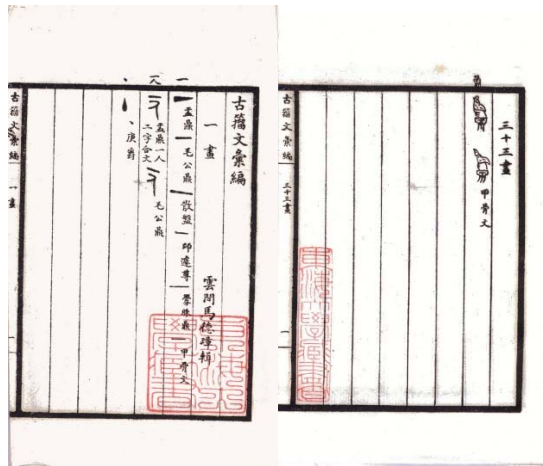 古籀文彙編
一畫
雲間馬德璋輯
一
盂鼎 毛公鼎 散盤 師遽尊 甲骨文
一人
盂鼎一人
二字合文
毛公鼎
丶
庚爵
古籀文彙編 一畫
三十三畫
甲骨文
古籀文彙編 三十三畫
東海大學藏書